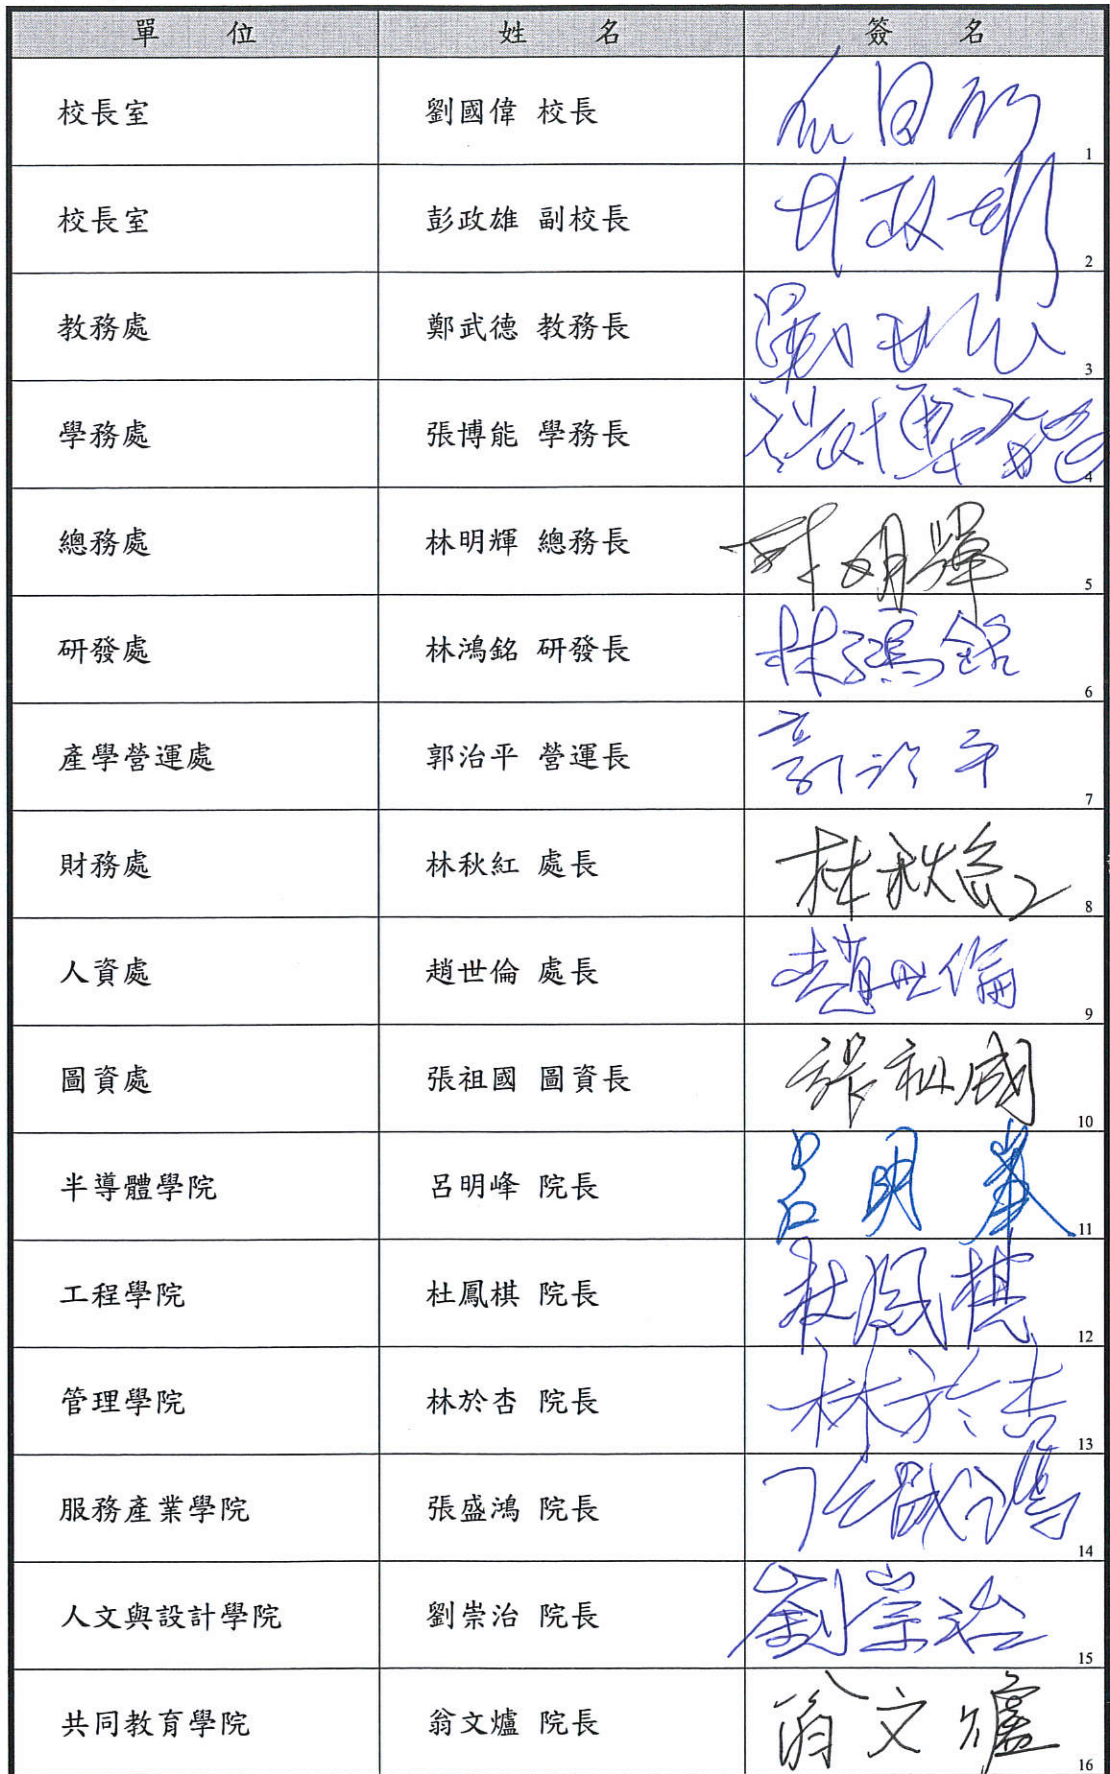 單 位 姓 名 簽 名
校長室 劉國偉 校長 1
校長室 彭政雄 副校長 政雄 2
教務處 鄭武德 教務長 3
學務處 張博能 學務長 張博能 4
總務處 林明輝 總務長 林明輝 5
研發處 林鴻銘 研發長 林鴻銘 6
產學營運處 郭治平 營運長 郭治平 7
財務處 林秋紅 處長 林秋紅 8
人資處 趙世倫 處長 趙世倫 9
圖資處 張祖國 圖資長 張祖國 10
半導體學院 呂明峰 院長 呂明峯 11
工程學院 杜鳳棋 院長 杜鳳棋 12
管理學院 林於杏 院長 林於杏 13
服務產業學院 張盛鴻 院長 張盛鴻 14
人文與設計學院 劉崇治 院長 劉崇治 15
共同教育學院 翁文爐 院長 翁文爐 16